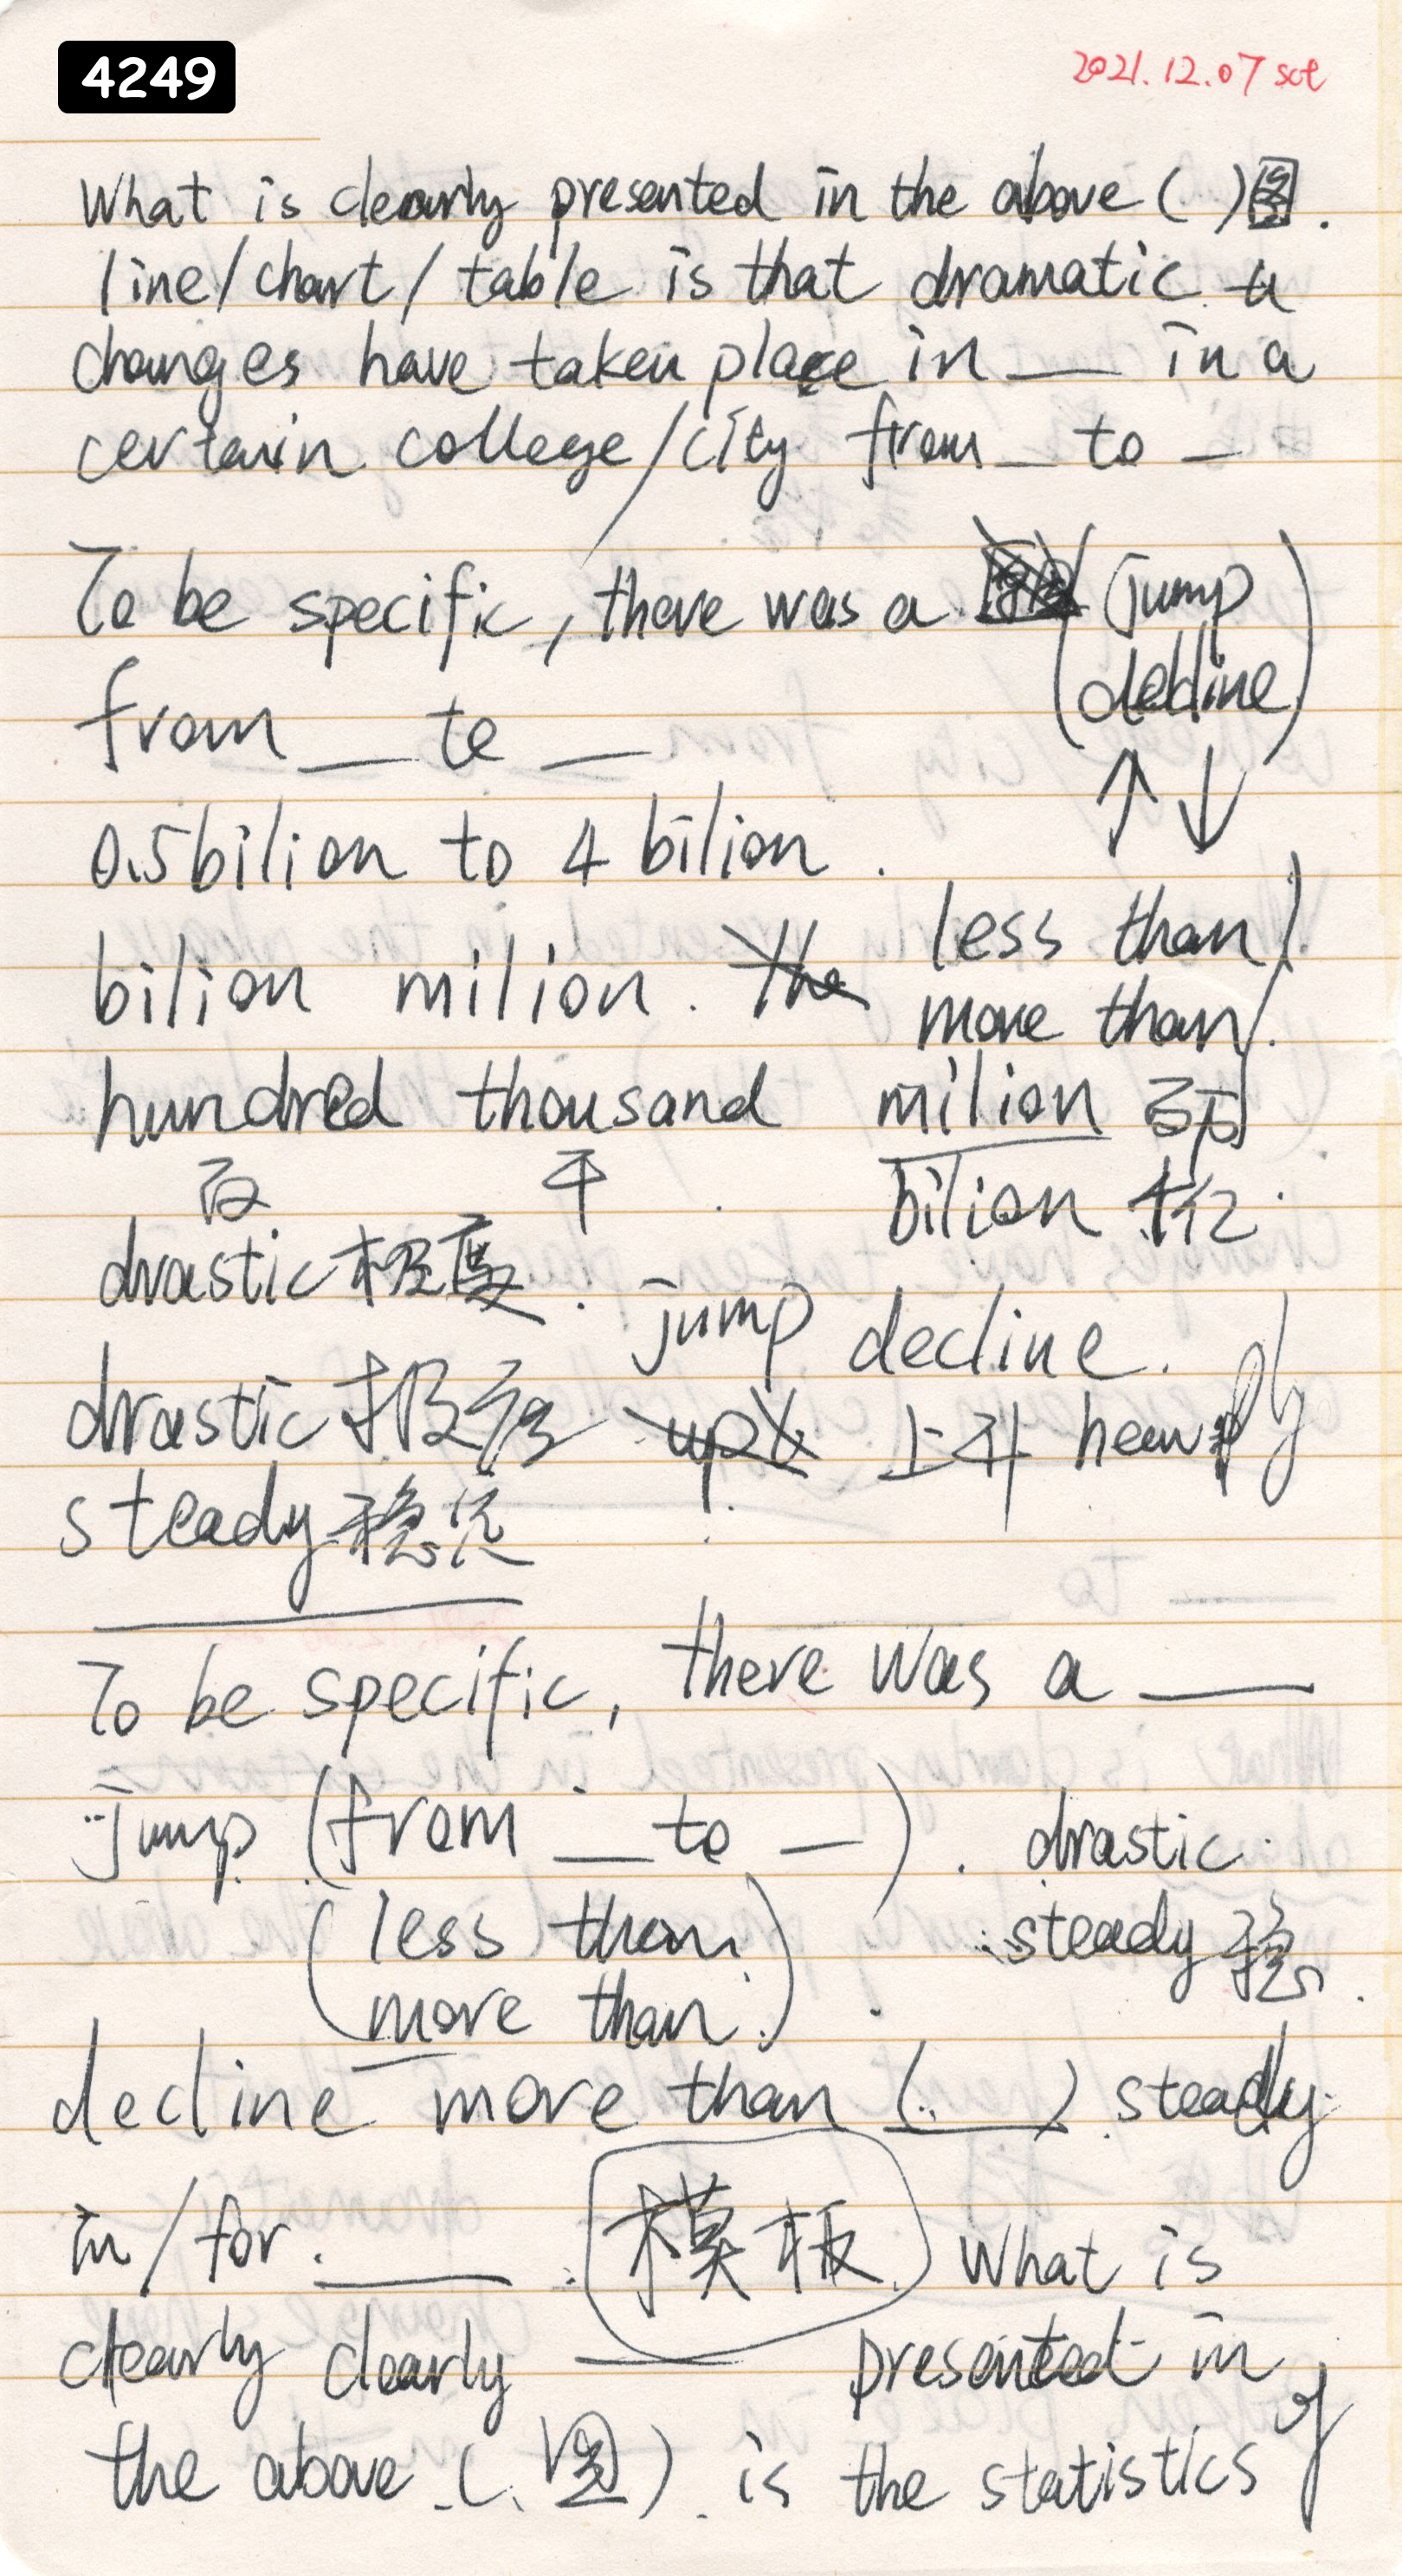 4249
2021.12.07 sat
What is clearly presented in the above ( )图.
line/chart/table is that dramatic
changes have taken place in __ in a
certain college/city from _ to _
To be specific, there was a (jump
decline)
from __ to __
↑ ↓
0.5bilion to 4 bilion.
less than/
bilion milion. The
more than/.
hundred thousand milion 百万
百 千 bilion 十亿.
drastic 极度.
jump decline.
drastic 极度 上升 heavily
steady 稳定
To be specific, there was a __
jump (from __ to __). drastic.
(less than steady 稳.
more than.)
decline more than (__) steady.
in/for. __ 模板 What is
clearly clearly __ presented in
the above (图). is the statistics of